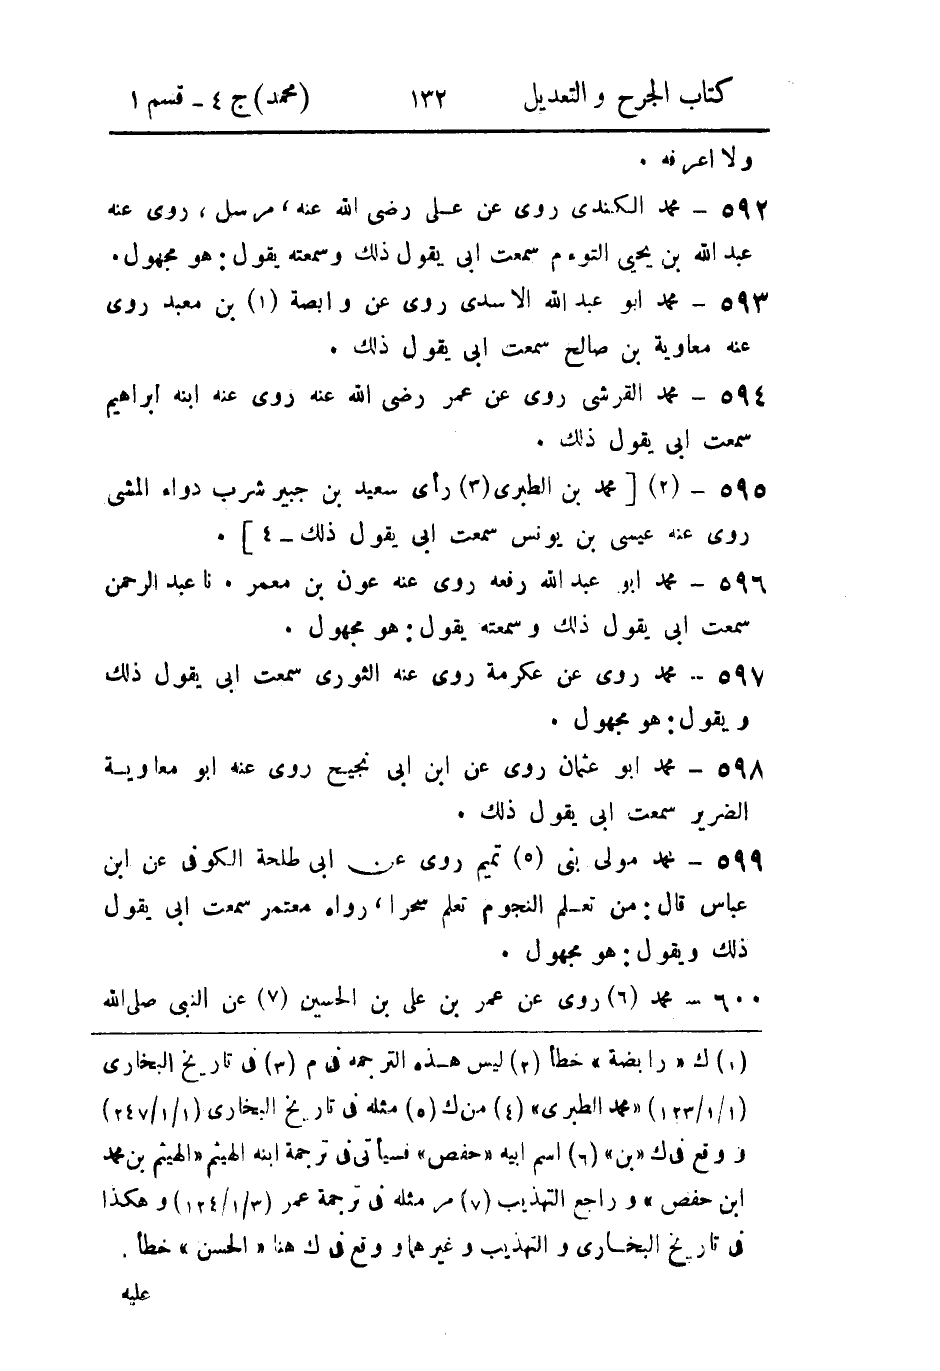 كتاب الجرح و التعديل ١٣٢ (محمد) ج ٤ - قسم ١
ولا اعرفه .
٥٩٢ - محمد الكندى روى عن على رضى الله عنه، مرسل، روى عنه
عبد الله بن يحيى التوءم سمعت ابى يقول ذلك وسمعته يقول: هو مجهول.
٥٩٣ - محمد ابو عبد الله الاسدى روى عن وابصة (١) بن معبد روى
عنه معاوية بن صالح سمعت ابى يقول ذلك .
٥٩٤ - محمد القرشى روى عن عمر رضى الله عنه روى عنه ابنه ابراهيم
سمعت ابى يقول ذلك .
٥٩٥ - (٢) [ محمد بن الطبرى (٣) رأى سعيد بن جبير شرب دواء المشى
روى عنه عيسى بن يونس سمعت ابى يقول ذلك - ٤ ] .
٥٩٦ - محمد ابو عبد الله رفعه روى عنه عون بن معمر . نا عبد الرحمن
سمعت ابى يقول ذلك و سمعته يقول: هو مجهول .
٥٩٧ - محمد روى عن عكرمة روى عنه الثورى سمعت ابى يقول ذلك
و يقول: هو مجهول .
٥٩٨ - محمد ابو عثمان روى عن ابن ابى نجيح روى عنه ابو معاوية
الضرير سمعت ابى يقول ذلك .
٥٩٩ - محمد مولى بنى (٥) تميم روى عن ابى طلحة الكوفى عن ابن
عباس قال: من تعلم النجوم تعلم سحرا، رواه معتمر سمعت ابى يقول
ذلك ويقول: هو مجهول .
٦٠٠ - محمد (٦) روى عن عمر بن على بن الحسين (٧) عن النبى صلى الله
(١) ك « رابضة » خطأ (٢) ليس هذه الترجمة فى م (٣) فى تاريخ البخارى
(١/١/١٢٣) «محمد الطبرى» (٤) من ك (٥) مثله فى تاريخ البخارى (١/١/٢٤٧)
و وقع فى ك «بن» (٦) اسم ابيه «حفص» فسيأتى فى ترجمة ابنه الهيثم «الهيثم بن محمد
ابن حفص » و راجع التهذيب (٧) مر مثله فى ترجمة عمر (٣/١/١٢٤) و هكذا
فى تاريخ البخارى و التهذيب و غيرها و وقع فى ك هنا « الحسن » خطأ .
عليه